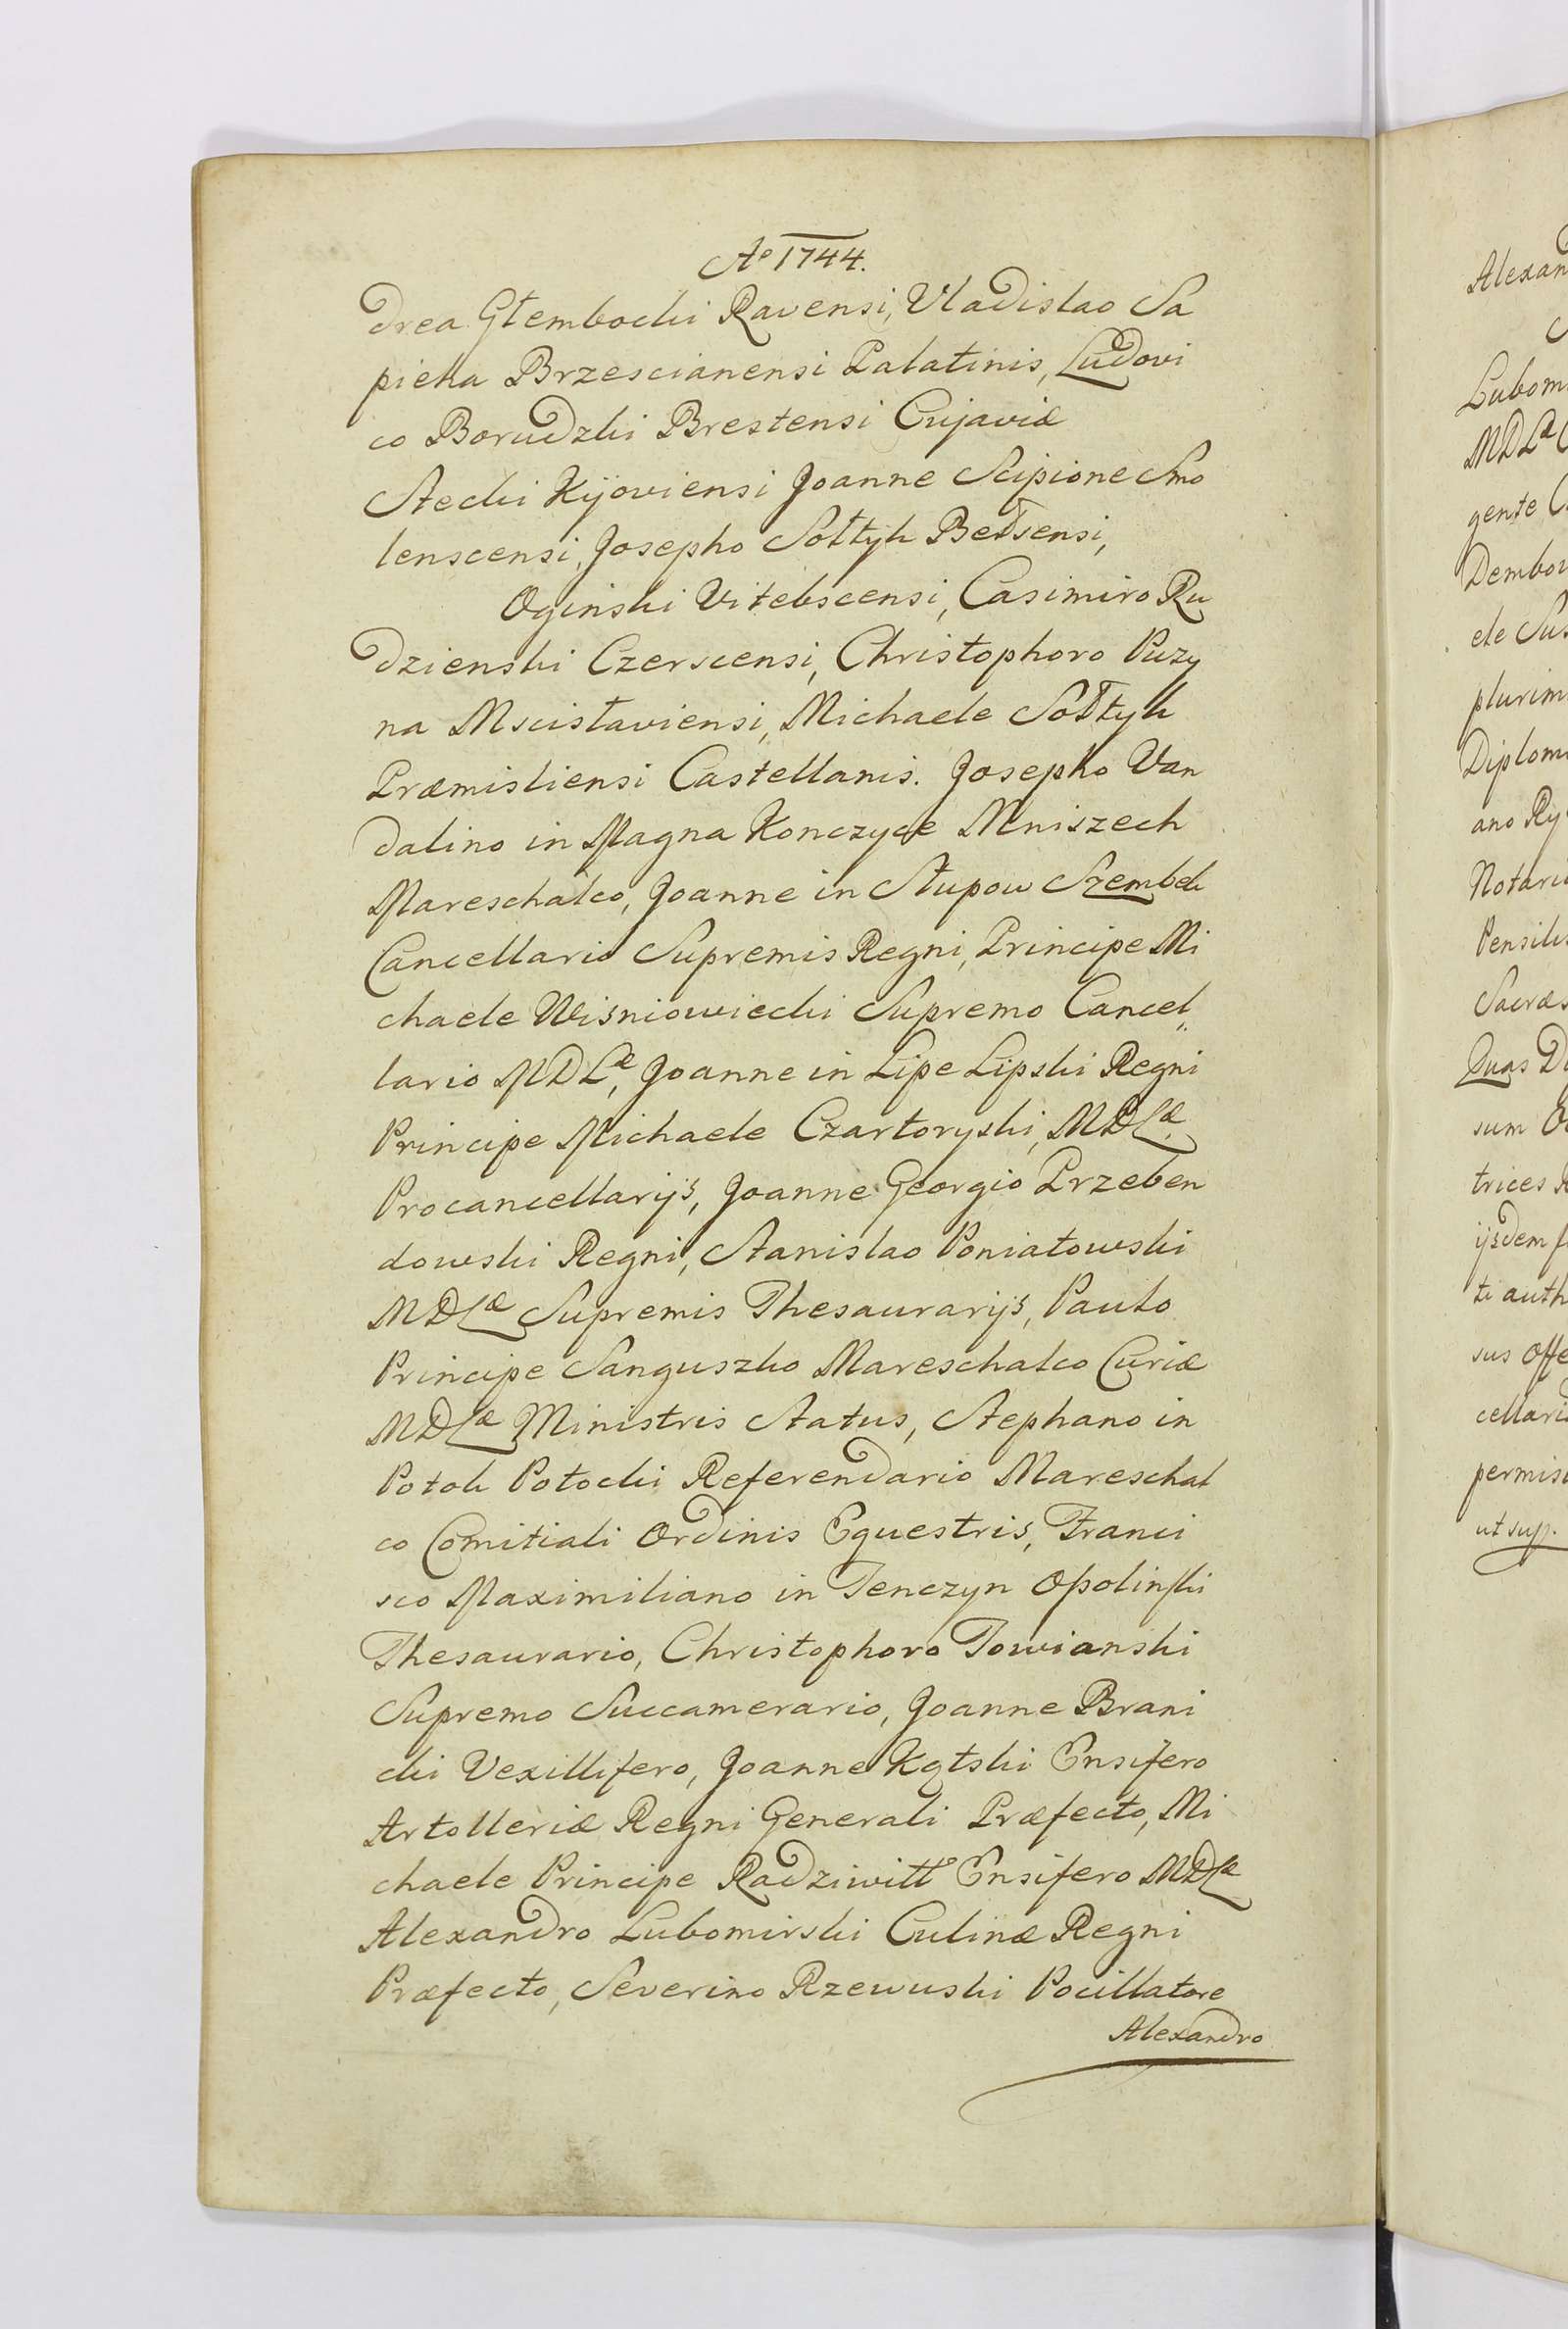 Aº 1744.
drea Głembocki Ravensi, Vladislao Sa
pieha Brzescianensi Palatinis, Ludovi
co Borudzki Brestensi Cujaviæ
Stecki Kijoviensi Joanne Scipione Smo
lenscensi, Josepho Sołtyk Bełsensi,
Oginski Vitebscensi, Casimiro Ru
dzienski Czerscensi, Christophoro Puzy
na Mscislaviensi, Michaele Sołtyk
Præmisliensi Castellanis. Josepho Van
dalino in Magna Konczyce Mniszech
Mareschalco, Joanne in Słupow Szembek
Cancellario Supremis Regni, Principe Mi
chaele Wisniowiecki Supremo Cancel„
lario MDLæ, Joanne in Lipe Lipski Regni
Principe Michaele Czartoryski, MDLæ.
Procancellarijs, Joanne Georgio Przeben
dowski Regni, Stanislao Poniatowski
MDLæ Supremis Thesaurarijs, Paulo
Principe Sanguszko Mareschalco Curiæ
MDLæ Ministris Status, Stephano in
Potok Potocki Referendario Mareschal
co Comitiali Ordinis Equestris, Franci
sco Maximiliano in Tenczyn Ossolinski
Thesaurario, Christophoro Towianski
Supremo Succamerario, Joanne Brani
cki Vexillifero, Joanne Kątski Ensifero
Artolleriæ Regni Generali Præfecto, Mi
chaele Principe Radziwiłł Ensifero MDLæ
Alexandro Lubomirski Culinæ Regni
Præfecto, Severino Rzewuski Pocillatore
Alexandro
Lubom
MDLæ
gente
ele Sus
plurim
Diplom
ano Ry
Notari
Pensili
Sacræ
Quas D
sum
trices
ijsdem
ti auth
sus Offe
cellari
permis
ut sup.